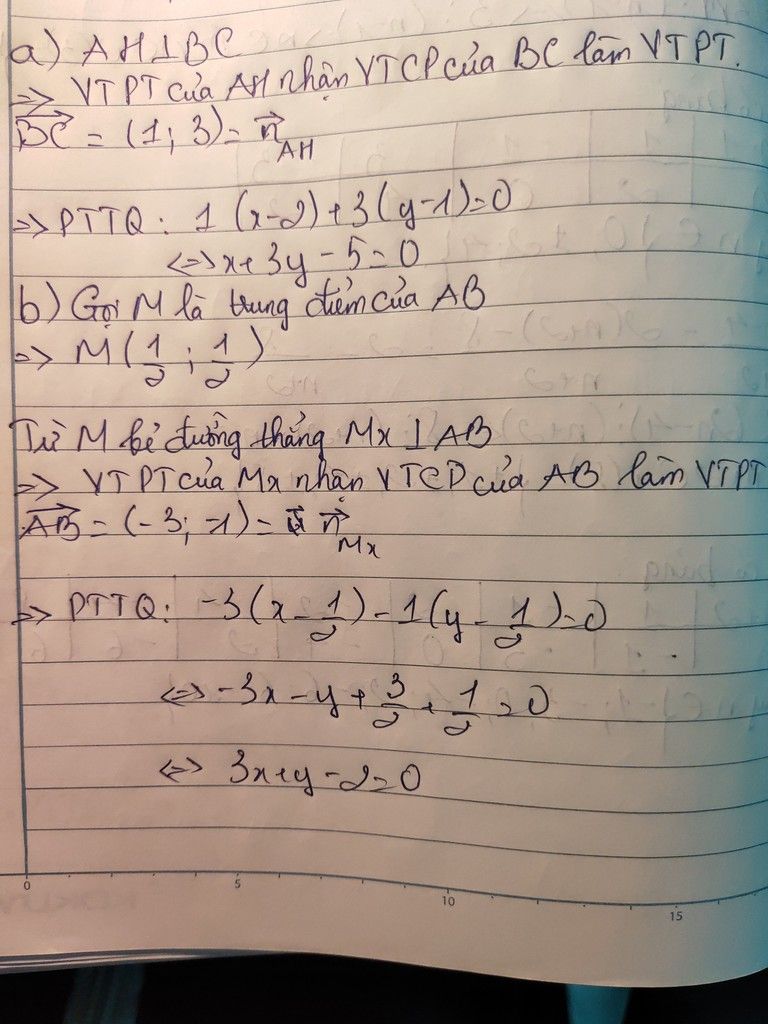 a) AH⊥BC
=> VTPT của AH nhận VTCP của BC làm VTPT.
BC = (1; 3) = n AH
=> PTTQ: 1 (x-2)+3(y-1)=0
<=> x+3y-5=0
b) Gọi M là trung điểm của AB
=> M(1/2; 1/2)
Từ M kẻ đường thẳng Mx⊥AB
=> VTPT của Mx nhận VTCP của AB làm VTPT
AB = (-3; -1) = n Mx
=> PTTQ: -3(x-1/2)-1(y-1/2)=0
<=> -3x-y+3/2+1/2=0
<=> 3x+y-2=0
0 5 10 15